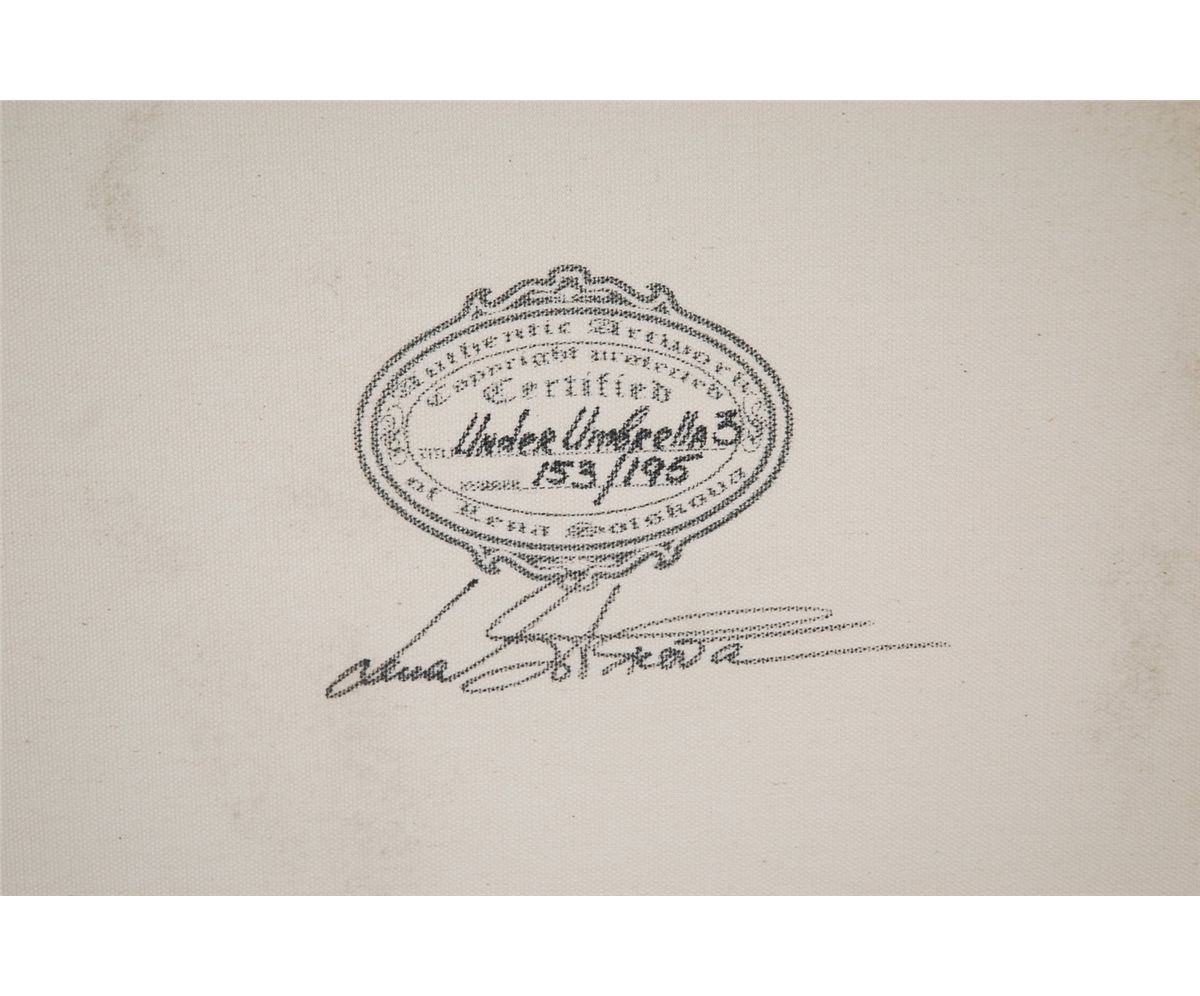 Authentic Artwork
Copyright protected
Certified
TITLE Under Umbrella 3
NUMBER 153/195
of Lena Sotskova
Lena Sotskova